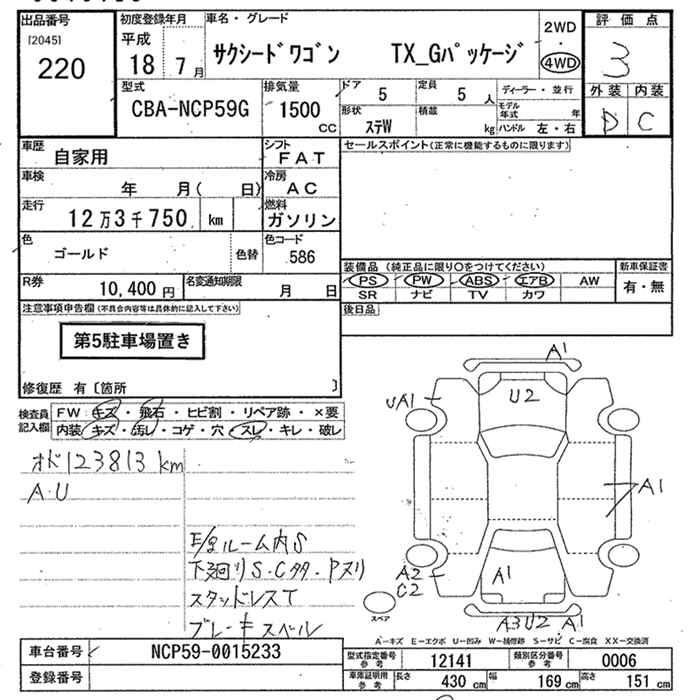 出品番号
[2045]
220
初度登録年月
平成
18 7月
車名・グレード
サクシードワゴン TX_Gパッケージ
2WD
・
4WD
評価点
3
外装 内装
D C
型式
CBA-NCP59G
排気量
1500
CC
ドア
5
定員
5 人
ディーラー・並行
形状
ステW
積載
kg
モデル年式 年
ハンドル 左・右
車歴
自家用
シフト
FAT
車検
年 月( 日)
冷房
AC
走行
12万3千750 km
燃料
ガソリン
色
ゴールド
色替
色コード
586
R券
10,400円
名変通知期限
月 日
セールスポイント(正常に機能するものに限ります)
装備品(純正品に限り〇をつけてください)
PS PW ABS エアB AW
SR ナビ TV カワ
新車保証書
有・無
後日品
注意事項申告欄(不具合内容等は具体的に記入して下さい)
第5駐車場置き
修復歴 有〔箇所 〕
検査員
記入欄
FW キズ・飛石・ヒビ割・リペア跡・×要
内装 キズ・汚レ・コゲ・穴・スレ・キレ・破レ
オド123813km
A.U
ルーム内S
下廻りS・Cタタ・Pヌリ
スタッドレスT
ブレーキスベル
A1
U2
UA1
A1
A2
C2
A1
A3U2 A1
スペア
A-キズ E-エクボ U-凹み W-補修跡 S-サビ C-腐食 XX-交換済
車台番号
NCP59-0015233
登録番号
型式指定番号
参考
12141
類別区分番号
参考
0006
車庫証明用
参考
長さ
430 cm
幅
169 cm
高さ
151 cm